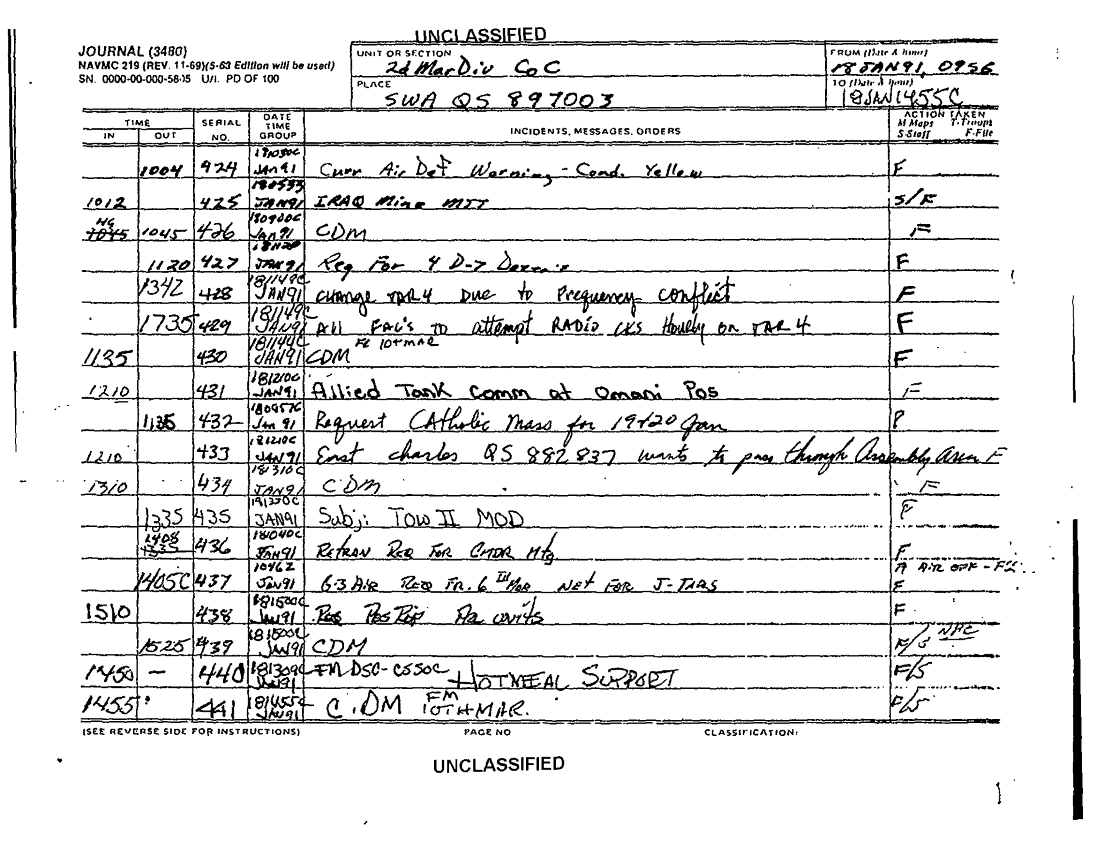 UNCLASSIFIED
JOURNAL (3480)
NAVMC 219 (REV. 11-69)(5-63 Edition will be used)
SN. 0000-00-000-5815 U/I. PD OF 100
UNIT OR SECTION
2d MarDiv CoC
FROM (Date & hour)
18 JAN 91, 0956
PLACE
SWA QS 897003
TO (Date & hour)
18JAN1455C
TIME
IN OUT
SERIAL NO.
DATE TIME GROUP
INCIDENTS, MESSAGES, ORDERS
ACTION TAKEN
M Maps T-Troops
S-Staff F-File
1004 424 JAN91 Curr Air Def Warning - Cond. Yellow F
1012 425 JAN91 IRAQ Mine MTT S/F
1045 426 180900C Jan91 CDM F
1120 427 JAN91 Req For 4 D-7 F
1342 428 181149C JAN91 CHANGE TAR4 DUE to Frequency conflict F
1735 429 181149C JAN91 All FAC's TO attempt RADIO CKS Hourly on TAR 4 F
1135 430 181144C JAN91 CDM FR 10thMAR F
1210 431 181210C JAN91 Allied Tank Comm at Omani Pos F
1135 432 180957C Jan 91 Request CAtholic Mass for 19+20 Jan F
1210 433 181210C JAN 91 East charles QS 882 837 wants to pass through Assembly Area F
1310 434 181310C JAN91 CDM F
1335 435 JAN91 Subj: Tow II MOD F
1408 436 181040C JAN91 RETRAN REQ FOR CMDR Mtg F
1405C 437 JAN91 6-3 AIR REQ FR. 6 MAR NET FOR J-TARS F
1510 438 181500C JAN91 Pos Rep units F
1525 439 181500C JAN91 CDM F/S
1450 — 440 181309C JAN91 FM DSC-CSSOC HOTMEAL SUPPORT F/S
1455 441 181455C JAN91 C.DM FM 10TH MAR. F/S
(SEE REVERSE SIDE FOR INSTRUCTIONS) PAGE NO CLASSIFICATION:
UNCLASSIFIED